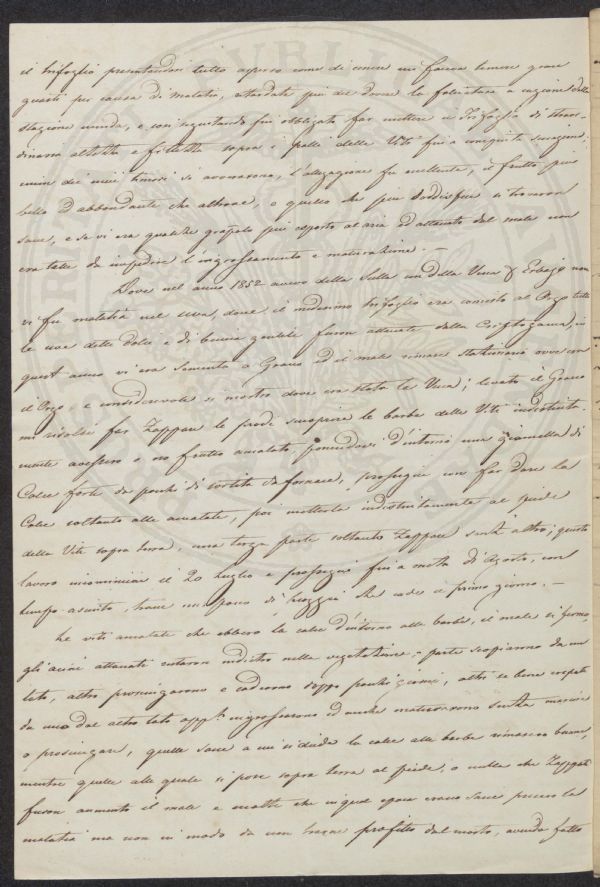 il trifoglio presentandosi tutto aperso come di cenere mi faceva temere gran
guasti per causa di malatia, ritardate più del dovere la falciatura a cagione della
stagione umida, e così seguitando fui obbligato far mettere il Trifoglio di straor-
dinaria altezza e fittezza sopra i palli delle Viti fin a compiuta
niun dei miei timori si avverarono, l'allegagione fu eccellente, il frutto più
bello ed abbondante che altrove, e quello che più soddisfece si trovaron
sane, e se vi era qualche grapolo più esposto al aria ed attacato del male non
era tale da impedire l'ingrossamento e maturazione. —
Dove nel anno 1852 avevo della Sulla un della Veccia ed Erbajo non
vi fu malatia nel uva, dove il medesimo trifoglio era concesso al Orzo tutte
le uve delle dolci e di buccia gentile furon attacate della Crittogama, in
quest anno vi era Sementa a Grano ed il male rimase stationario ove era
l'Orzo, e considerevole si mostrò dove era stata la Veccia; levato il Grano
mi risolsi far Zappare le prode scuoprire le barbe delle Viti indistinta-
mente avessero o no frutto amalato, ponendovi d'intorno una giomella di
Calce forte da pochi dì sortita da fornace, proseguii con far dare la
Calce soltanto alle amalate, poi metterla indistintamente al piede
della Vite sopra terra, una terza parte soltanto Zappare senz'altro; questo
lavoro incominciai il 20 Luglio e proseguii fin a metà di Agosto, con
tempo asciuto, trane un poco di pioggia che cade il primo giorno. —
Le viti amalate che ebbero la calce d'intorno alle barbe, il male si fermò,
gli acini attacati restaron indietro nella vegetazione, parte scopiarono da un
lato, altri prosciugarono e cadderono doppo pochi giorni, altri se bene crepati
da uno dal altro lato ingrossarono ed anche maturarono senza marcire
o prosciugare, quelle sane a cui si diede la calce alle barbe rimasero buone,
mentre quelle alle quale si pose sopra terra al piede, o nulla che Zappate
furon aumentò il male e molte che in qual epoca erano sane presero la
malatia ma non in modo da non trarne profitto dal mosto, avendo fatto